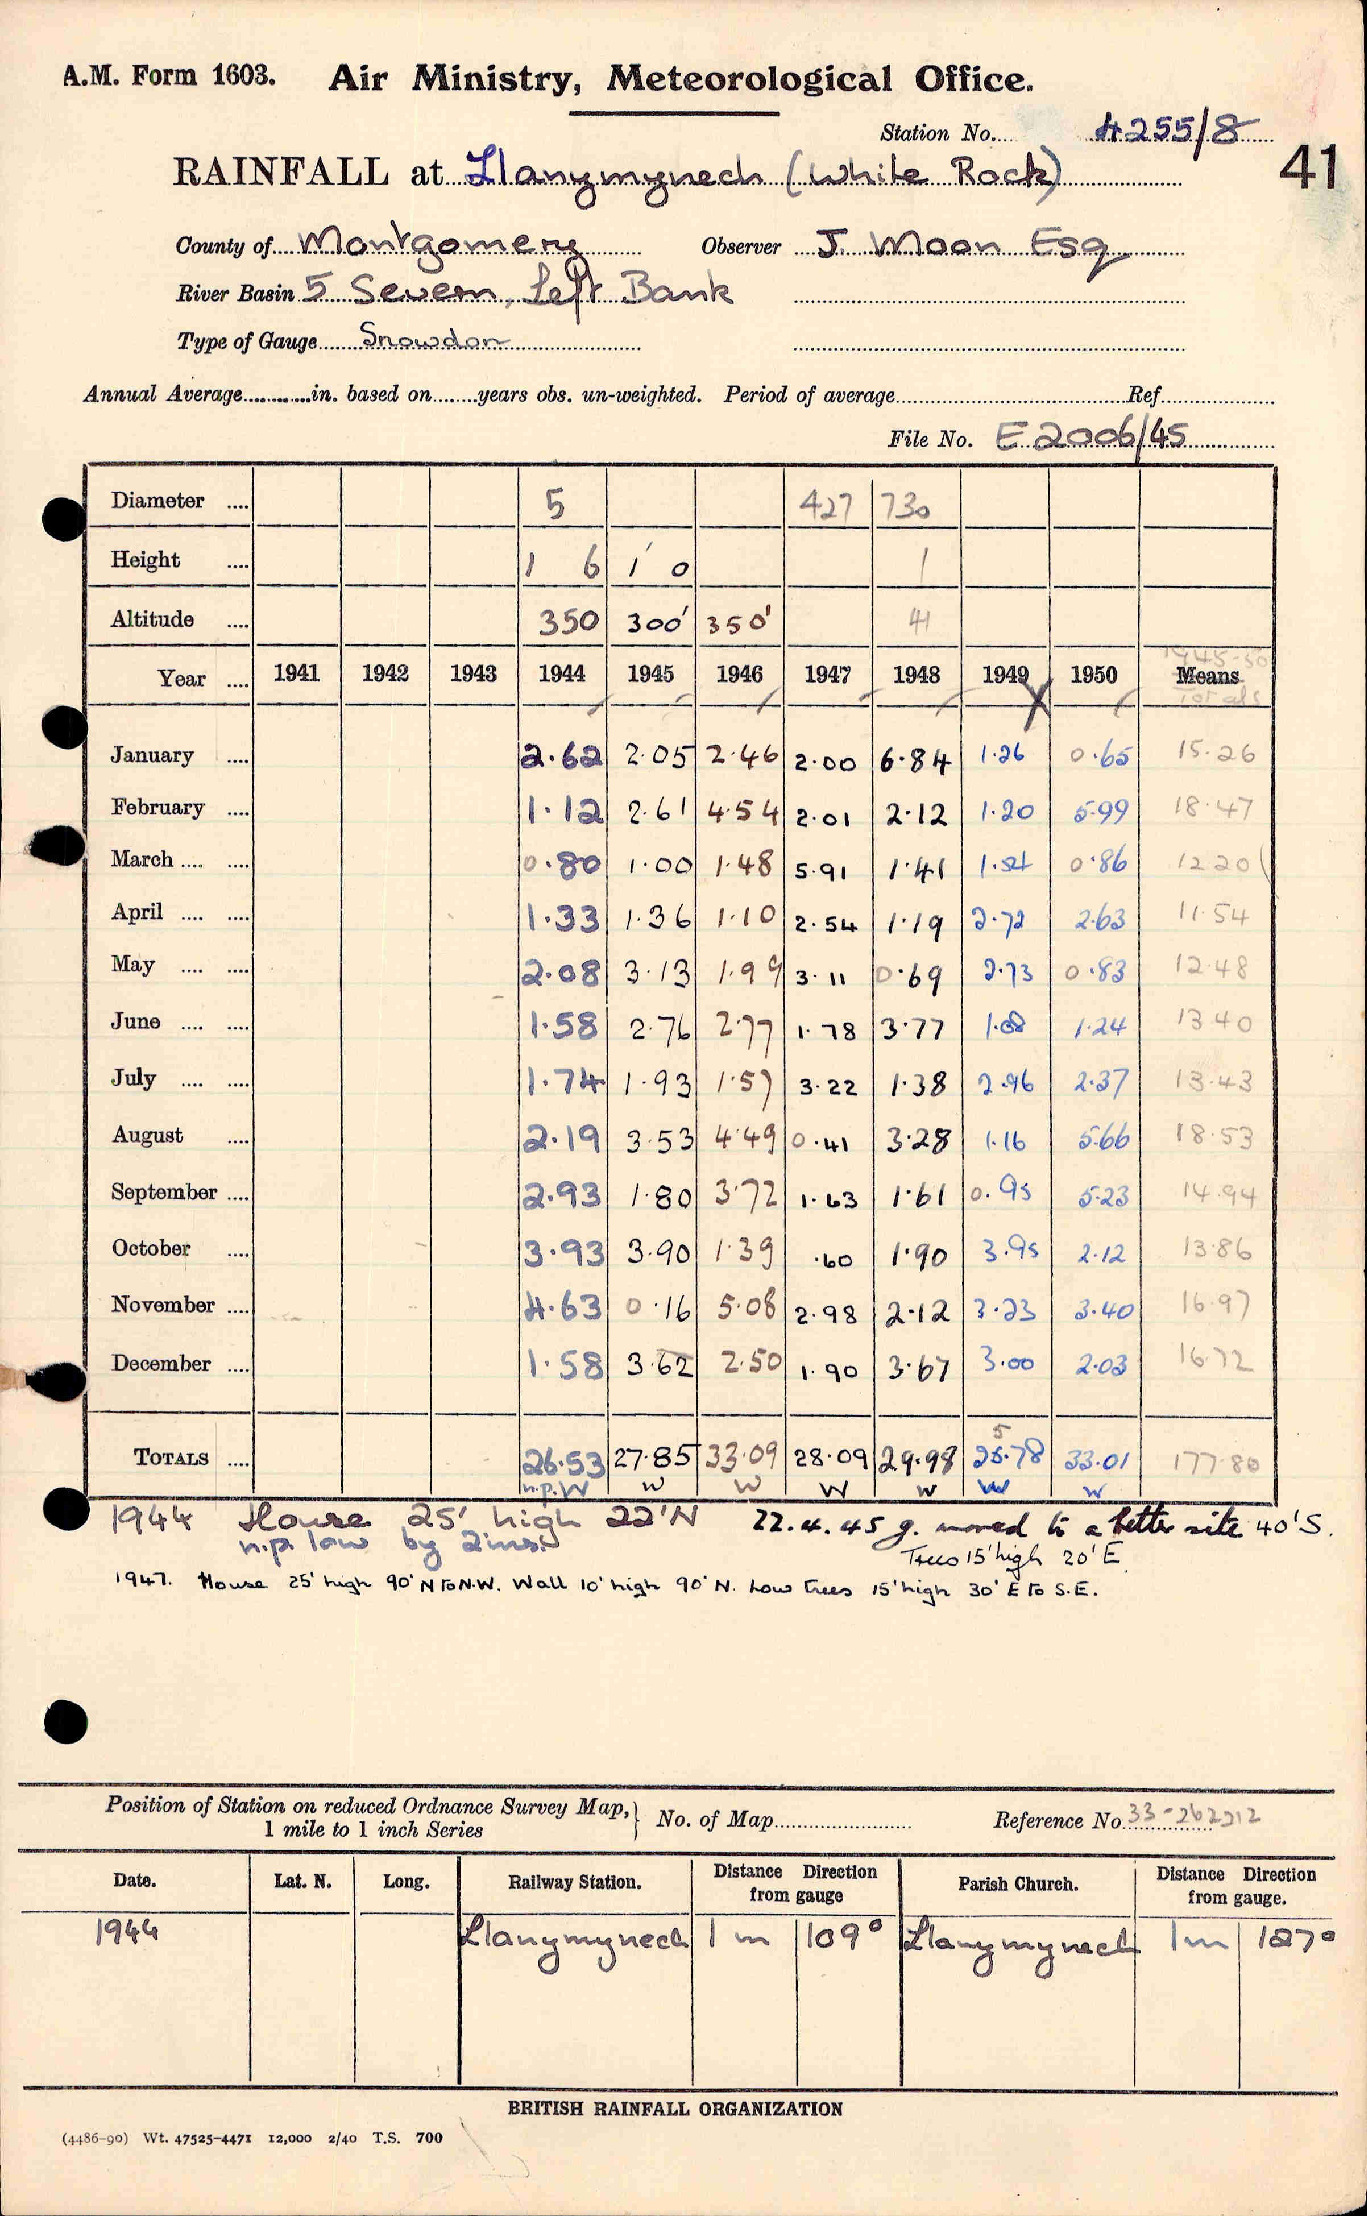 A.M. Form 1603. Air Ministry, Meteorological Office.
Station No. 4255/8
RAINFALL at Llanymynech (White Rock) 41
County of Montgomery Observer J. Moon Esq
River Basin 5 Severn, Left Bank
Type of Gauge Snowdon
Annual Average in. based on years obs. un-weighted. Period of average Ref.
File No. E 2006/45
Diameter .... 5 427 730
Height .... 1 6 1' 0 1
Altitude .... 350 300' 350' 41
1945-50
Year .... 1941 1942 1943 1944 1945 1946 1947 1948 1949 1950 Means
Totals
January .... 2.62 2.05 2.46 2.00 6.84 1.26 0.65 15.26
February .... 1.12 2.61 4.54 2.01 2.12 1.20 5.99 18.47
March .... .... 0.80 1.00 1.48 5.91 1.41 1.54 0.86 12.20
April .... .... 1.33 1.36 1.10 2.54 1.19 2.72 2.63 11.54
May .... .... 2.08 3.13 1.99 3.11 0.69 2.73 0.83 12.48
June .... .... 1.58 2.76 2.77 1.78 3.77 1.08 1.24 13.40
July .... .... 1.74 1.93 1.57 3.22 1.38 2.96 2.37 13.43
August .... 2.19 3.53 4.49 0.41 3.28 1.16 5.66 18.53
September .... 2.93 1.80 3.72 1.63 1.61 0.95 5.23 14.94
October .... 3.93 3.90 1.39 .60 1.90 3.95 2.12 13.86
November .... 4.63 0.16 5.08 2.98 2.12 3.23 3.40 16.97
December .... 1.58 3.62 2.50 1.90 3.67 3.00 2.03 16.72
5
TOTALS .... 26.53 27.85 33.09 28.09 29.98 25.78 33.01 177.80
n.p. W W W W W W W
1944 House 25' high 22'N 22.4.45 g. moved to a better site 40'S.
n.p low by 2ins. Trees 15' high 20' E
1947. House 25' high 90' N to N.W. Wall 10' high 90' N. Low trees 15' high 30' E to S.E.
Position of Station on reduced Ordnance Survey Map, } No. of Map Reference No. 33-262212
1 mile to 1 inch Series
Date. Lat. N. Long. Railway Station. Distance Direction from gauge Parish Church. Distance Direction from gauge.
1944 Llanymynech 1 m 109° Llanymynech 1m 107°
BRITISH RAINFALL ORGANIZATION
(4486-90) Wt. 47525-4471 12,000 2/40 T.S. 700